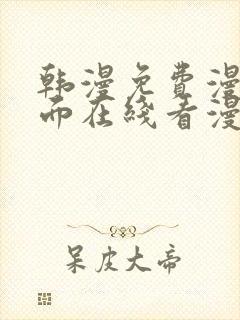 韩漫免费漫
而在线看漫
呆皮大帝